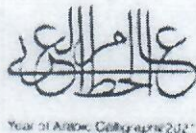 عام الخط العربي
Year of Arabic Calligraphy